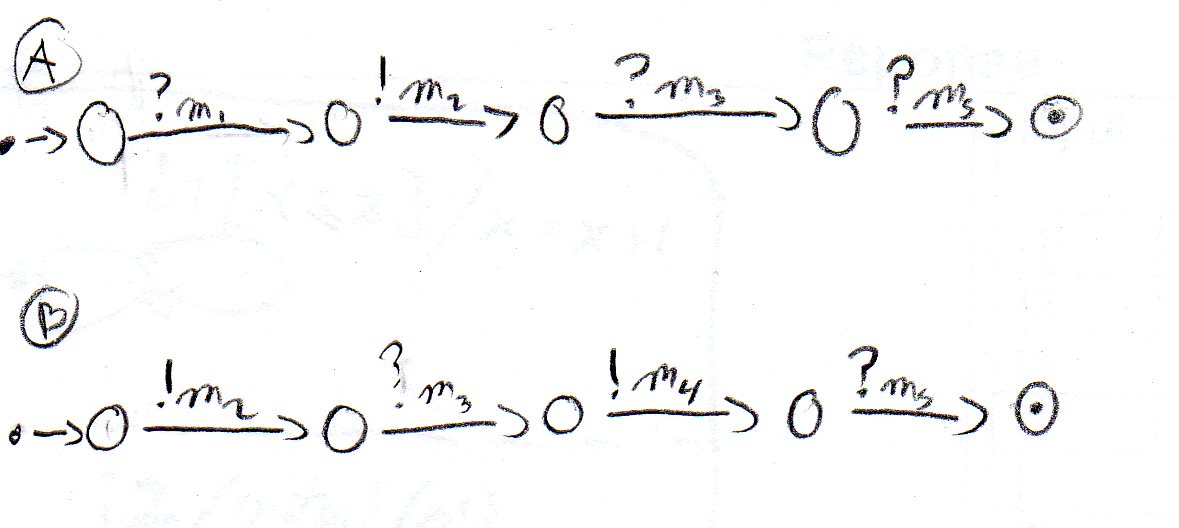 A
?m₁ !m₂ ?m₃ ?m₅
B
!m₂ ?m₃ !m₄ ?m₅